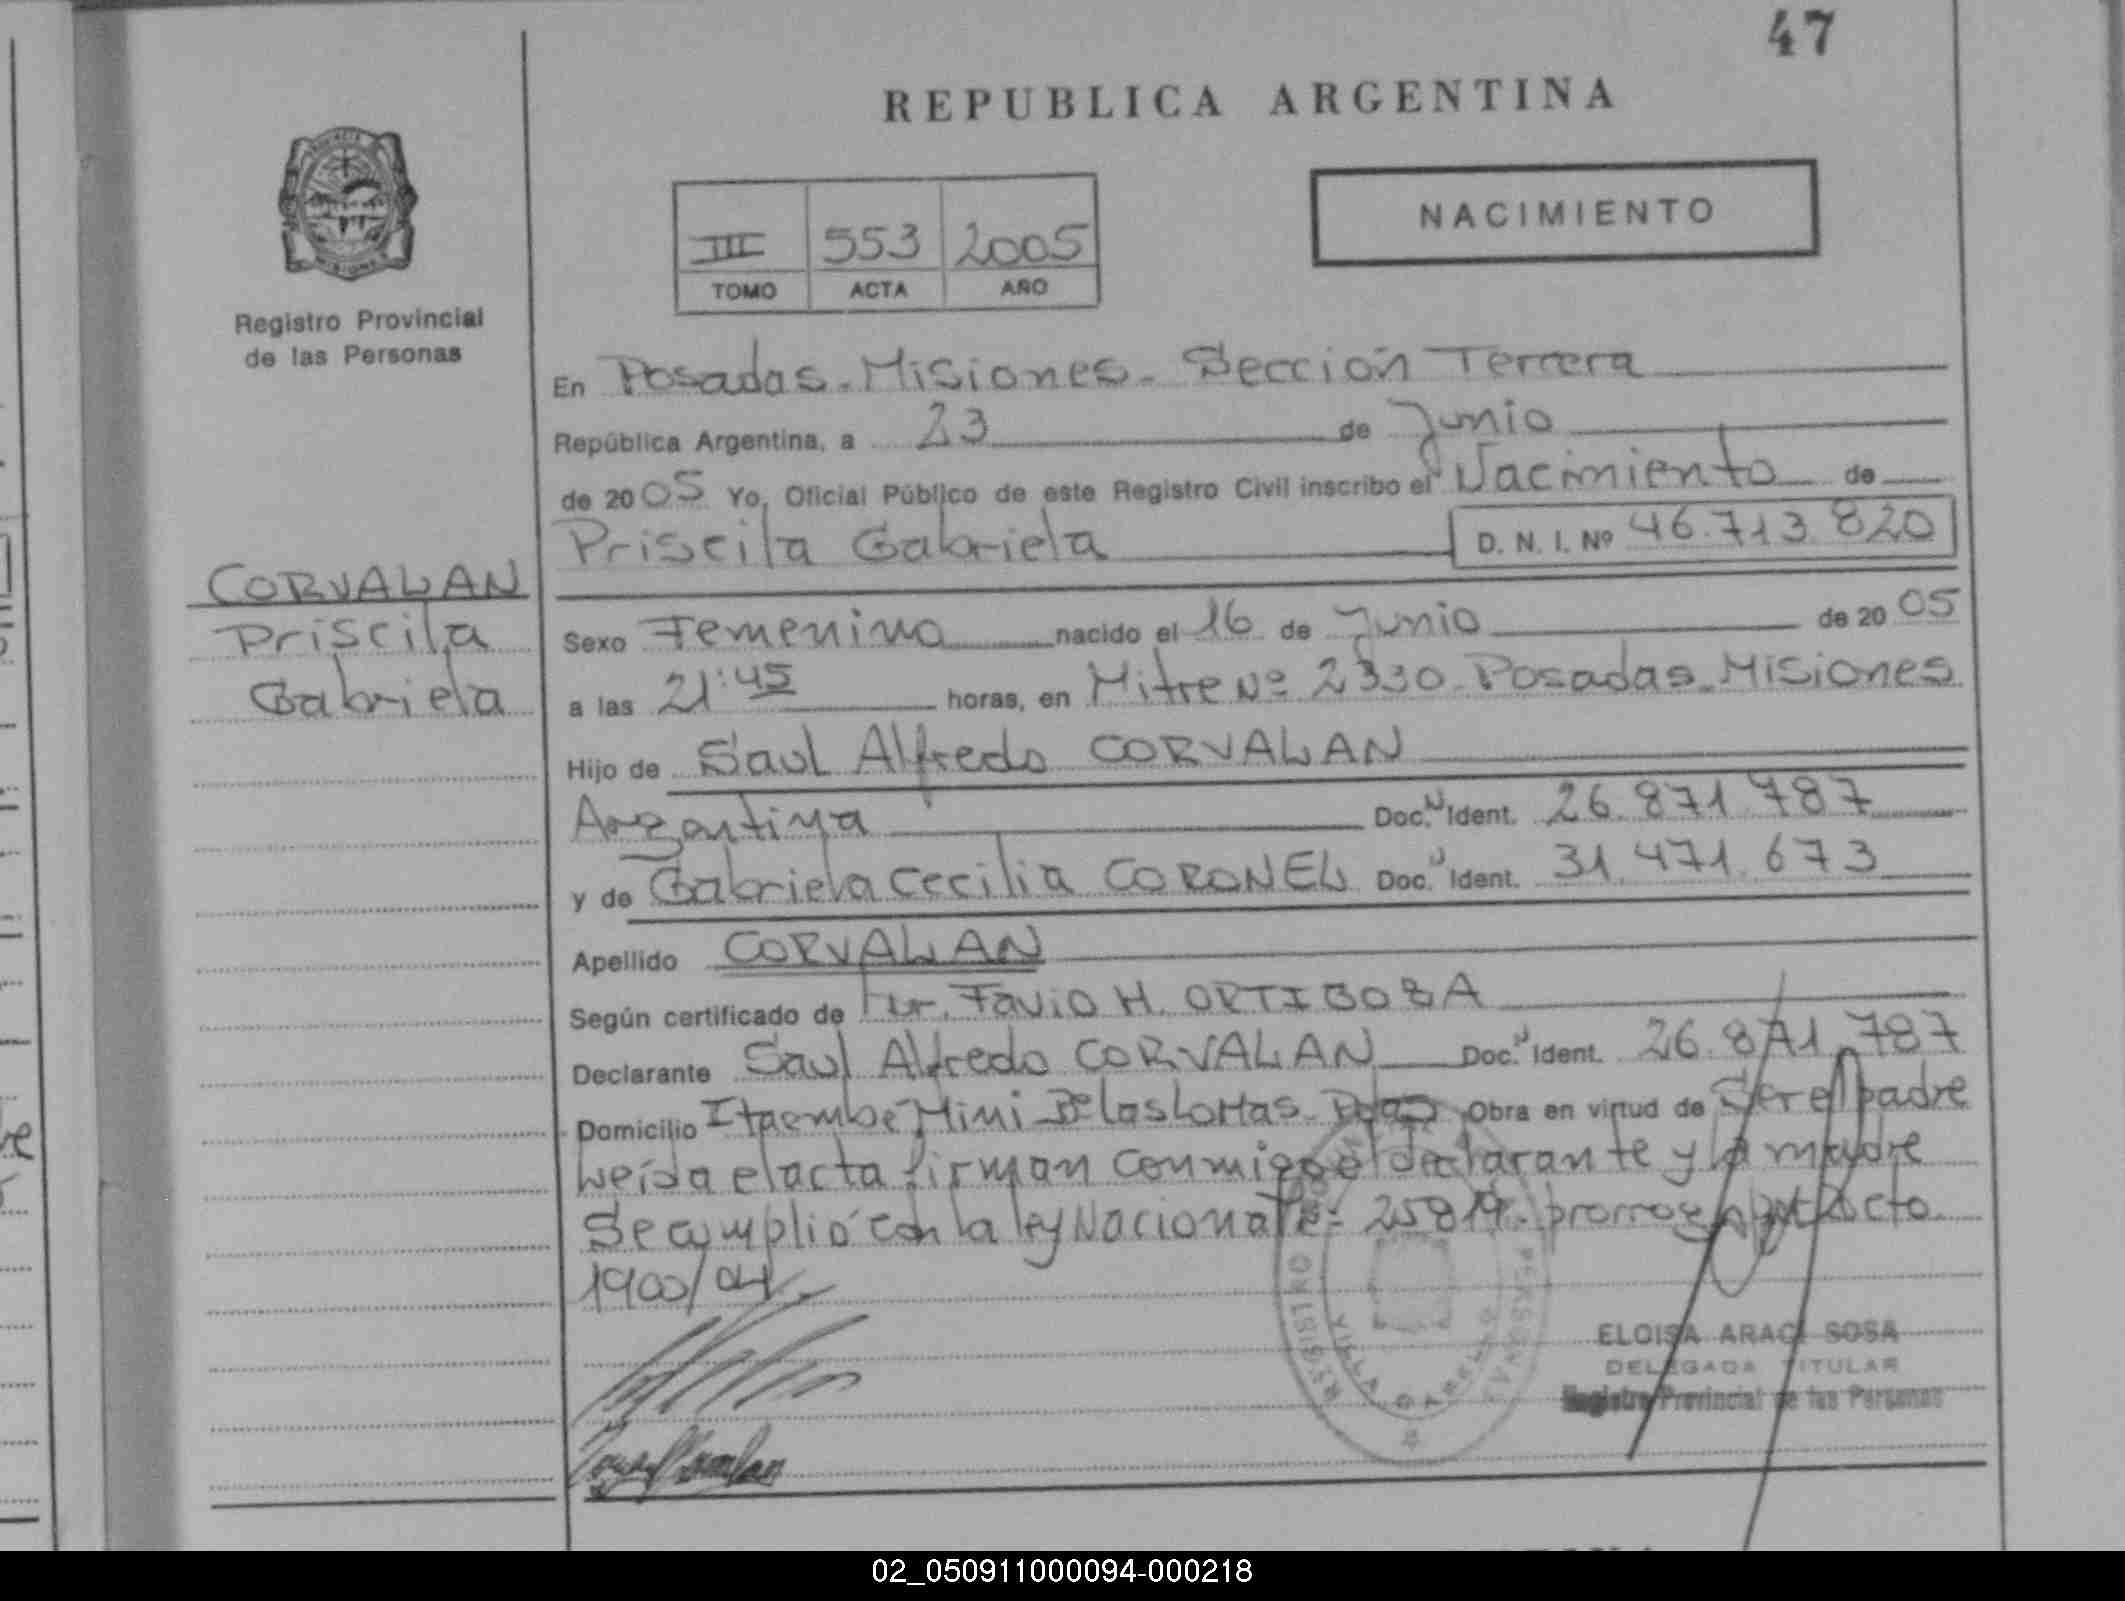 47
REPUBLICA ARGENTINA
III 553 2005
TOMO ACTA AÑO
NACIMIENTO
Registro Provincial
de las Personas
En Posadas - Misiones - Sección Tercera
República Argentina, a 23 de Junio
de 2005 Yo, Oficial Público de este Registro Civil inscribo el Nacimiento de
Priscila Gabriela D. N. I. Nº 46.713.820
CORVALAN
Priscila
Gabriela
Sexo Femenino nacido el 16 de Junio de 2005
a las 21:45 horas, en Mitre Nº 2330 - Posadas - Misiones
Hijo de Saul Alfredo CORVALAN
Argentina Doc. N Ident. 26.871.787
y de Gabriela Cecilia CORONEL Doc. N Ident. 31.471.673
Apellido CORVALAN
Según certificado de Dr. Favio H.
Declarante Saul Alfredo CORVALAN Doc. N Ident. 26.871.787
Domicilio Itaembe Mini Bº las Lomas Pdas Obra en virtud de Ser el padre
Leída el acta firman conmigo el declarante y la madre
Se cumplió con la ley Nacional Nº 25819 - Dcto
1900/04.
ELOISA ARACI SOSA
DELEGADA TITULAR
Registro Provincial de las Personas
REGISTRO PERSONAS
VILLA
02_050911000094-000218